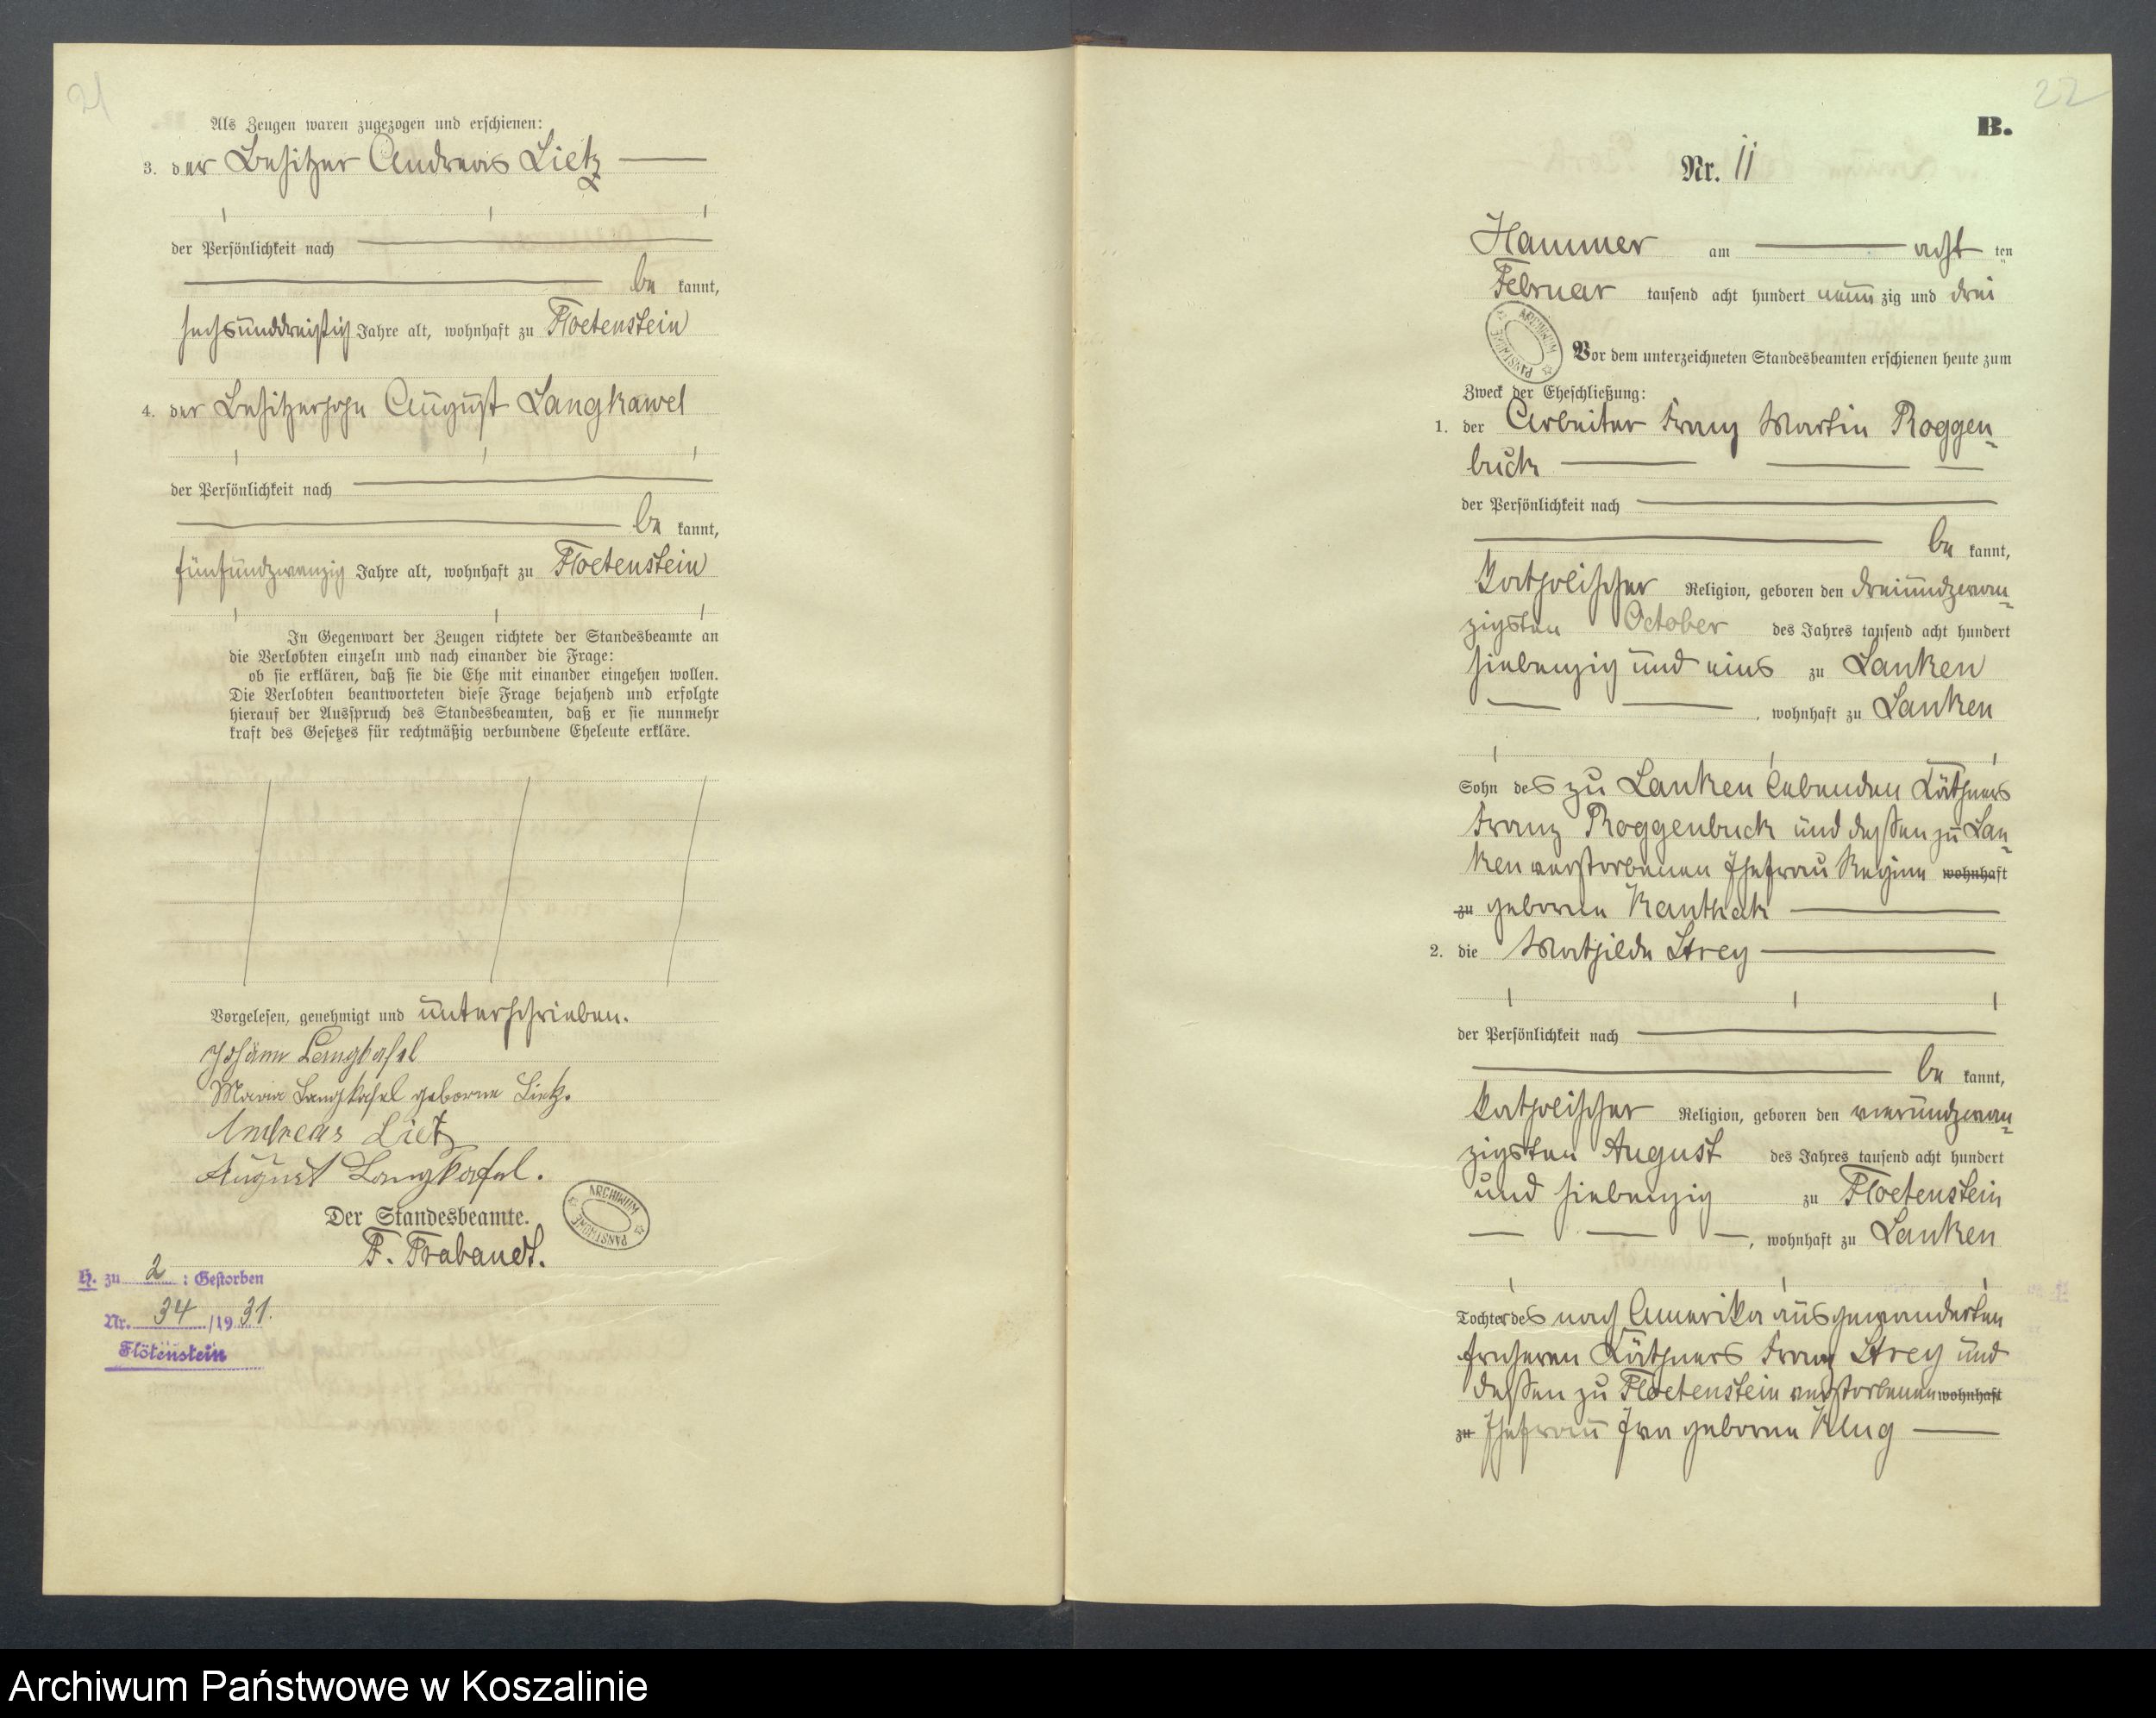 21
Als Zeugen waren zugezogen und erschienen:
3. der Besitzer Andreas Lietz
der Persönlichkeit nach
be kannt,
sechsunddreißig Jahre alt, wohnhaft zu Floetenstein
4. der Besitzersohn August Langkawel
der Persönlichkeit nach
be kannt,
fünfundzwanzig Jahre alt, wohnhaft zu Floetenstein
In Gegenwart der Zeugen richtete der Standesbeamte an
die Verlobten einzeln und nach einander die Frage:
ob sie erklären, daß sie die Ehe mit einander eingehen wollen.
Die Verlobten beantworteten diese Frage bejahend und erfolgte
hierauf der Ausspruch des Standesbeamten, daß er sie nunmehr
kraft des Gesetzes für rechtmäßig verbundene Eheleute erkläre.
Vorgelesen, genehmigt und unterschrieben.
Johann Langkafel
Maria Langkafel geborne Lietz.
Andreas Lietz
August Langkafel.
Der Standesbeamte.
F. Trabandt.
ARCHIWUM PAŃSTWOWE
H. zu 2 : Gestorben
Nr. 34 /19 31.
Flötenstein
22
B.
Nr. 11
Hammer am acht ten
Februar tausend acht hundert neun zig und drei
ARCHIWUM PAŃSTWOWE
Vor dem unterzeichneten Standesbeamten erschienen heute zum
Zweck der Eheschließung:
1. der Arbeiter Franz Martin Roggen-
buck
der Persönlichkeit nach
be kannt,
katholischer Religion, geboren den dreiundzwan-
zigsten October des Jahres tausend acht hundert
siebenzig und eins zu Lanken
, wohnhaft zu Lanken
Sohn des zu Lanken lebenden Käthners
Franz Roggenbuck und dessen zu Lan-
ken verstorbenen Ehefrau Regine wohnhaft
zu geborne Kanthak
2. die Mathilde Strey
der Persönlichkeit nach
be kannt,
katholischer Religion, geboren den vierundzwan-
zigsten August des Jahres tausend acht hundert
und siebenzig zu Floetenstein
, wohnhaft zu Lanken
Tochter des nach Amerika ausgewanderten
früheren Käthners Franz Strey und
dessen zu Floetenstein verstorbenen wohnhaft
zu Ehefrau Eva geborne Klug
Archiwum Państwowe w Koszalinie